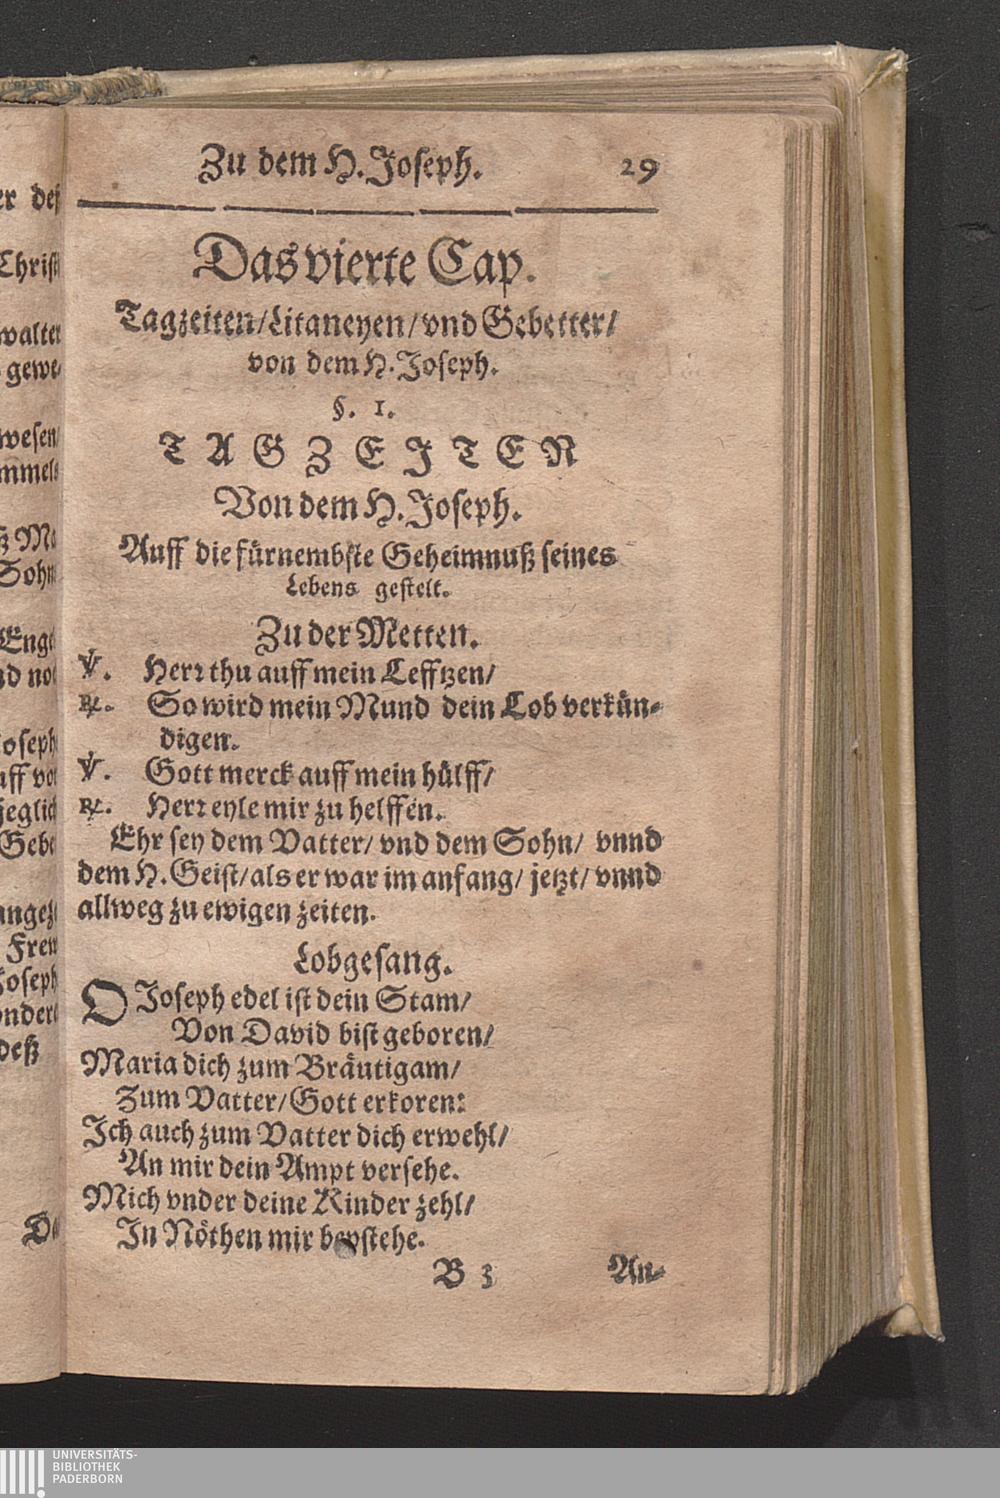 Zu dem H. Joseph. 29
Das vierte Cap.
Tagzeiten/Litaneyen/vnd Gebetter/
von dem H. Joseph.
§. 1.
TAGZEITEN
Von dem H. Joseph.
Auff die fürnembste Geheimnuß seines
Lebens gestelt.
Zu der Metten.
℣. Herꝛ thu auff mein Lefftzen/
℟. So wird mein Mund dein Lob verkün-
digen.
℣. Gott merck auff mein hülff/
℟. Herꝛ eyle mir zu helffen.
Ehr sey dem Vatter/ vnd dem Sohn/ vnnd
dem H. Geist/als er war im anfang/ jetzt/ vnnd
allweg zu ewigen zeiten.
Lobgesang.
O Joseph edel ist dein Stam/
Von David bist geboren/
Maria dich zum Bräutigam/
Zum Vatter/Gott erkoren:
Ich auch zum Vatter dich erwehl/
An mir dein Ampt versehe.
Mich vnder deine Kinder zehl/
In Nöthen mir beystehe.
B 3 An-
UNIVERSITÄTS-
BIBLIOTHEK
PADERBORN